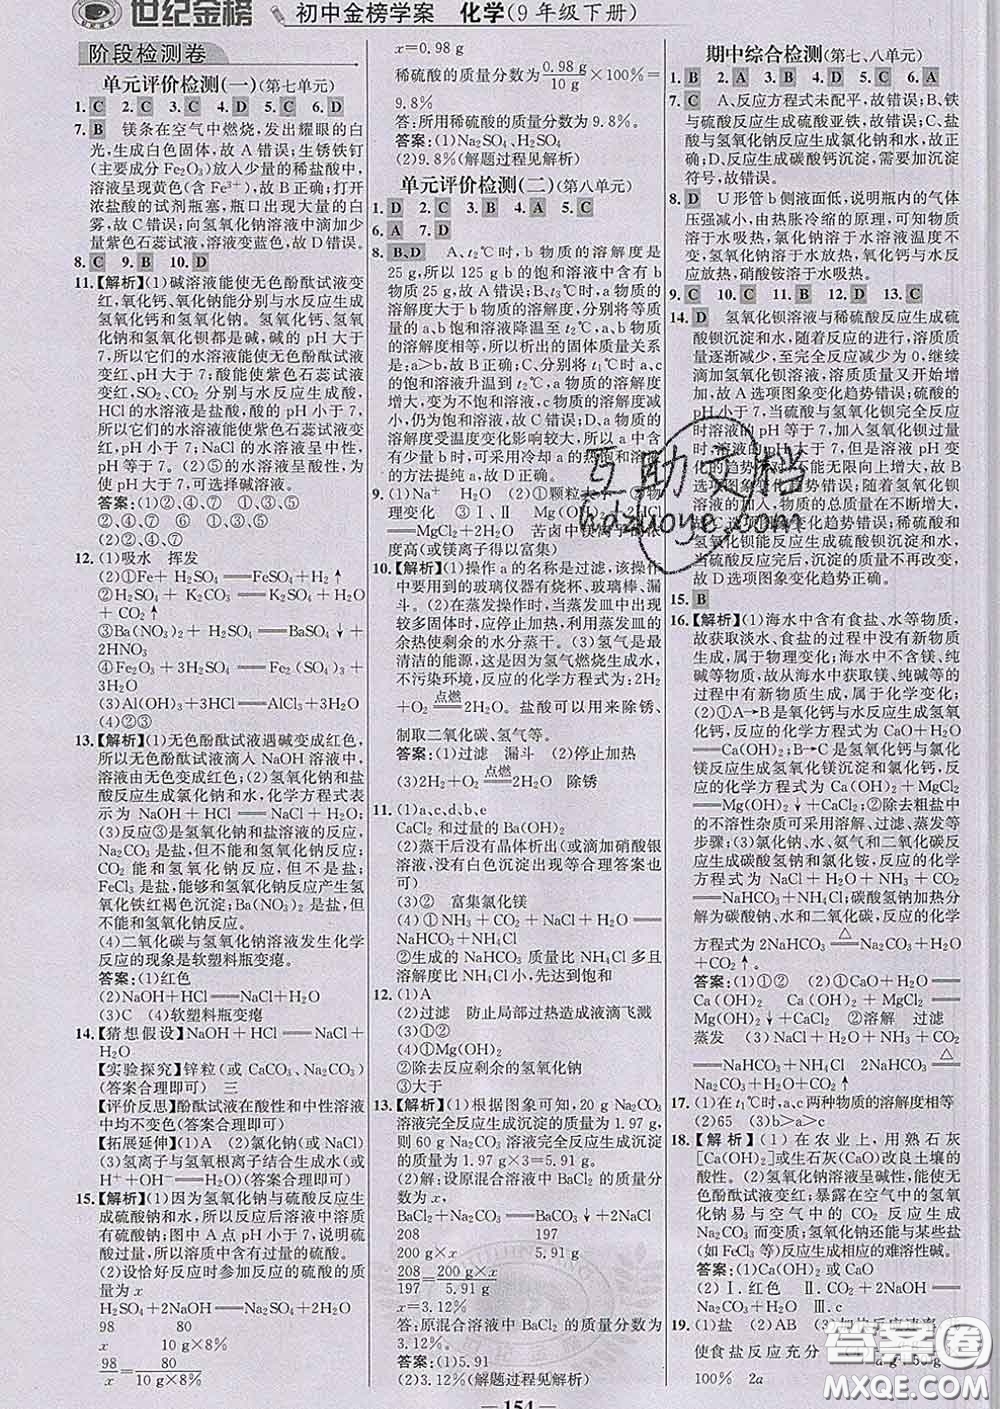 世纪金榜 初中金榜学案 化学(9年级下册)
阶段检测卷
单元评价检测(一)(第七单元)
1. C 2. C 3. C 4. D 5. C 6. D
7. B 镁条在空气中燃烧,发出耀眼的白
光,生成白色固体,故 A 错误;生锈铁钉
(主要成分 Fe2O3)放入少量的稀盐酸中,
溶液呈现黄色(含 Fe3+),故 B 正确;打开
浓盐酸的试剂瓶塞,瓶口出现大量的白
雾,故 C 错误;向氢氧化钠溶液中滴加少
量紫色石蕊试液,溶液变蓝色,故 D 错误。
8. C 9. B 10. D
11.【解析】(1)碱溶液能使无色酚酞试液变
红,氧化钙、氧化钠能分别与水反应生成
氢氧化钙和氢氧化钠。氢氧化钙、氢氧
化钠和氢氧化钡都是碱,碱的 pH 大于
7,所以它们的水溶液能使无色酚酞试液
变红、pH 大于 7;酸能使紫色石蕊试液
变红,SO2、CO2 分别与水反应生成酸,
HCl 的水溶液是盐酸,酸的 pH 小于 7,
所以它们的水溶液能使紫色石蕊试液变
红,pH 小于 7;NaCl 的水溶液呈中性,
pH 等于 7。(2)⑤的水溶液呈酸性,为使
其变为中性,可选择碱溶液。
答案:(1)①、②、④、⑦ ①、③、⑤
②、④、⑥、⑦ ①、③、⑤
(2)②、④、⑥、⑦
12.(1)吸水 挥发
(2)①Fe+H2SO4══FeSO4+H2↑
②H2SO4+K2CO3══K2SO4+H2O
+CO2↑
③Ba(NO3)2+H2SO4══BaSO4↓+
2HNO3
④Fe2O3+3H2SO4══Fe2(SO4)3+
3H2O
(3)Al(OH)3+3HCl══AlCl3+3H2O
(4)②③
13.【解析】(1)无色酚酞试液遇碱变成红色,
所以无色酚酞试液滴入 NaOH 溶液中,
溶液由无色变成红色;(2)氢氧化钠和盐
酸反应生成氯化钠和水,化学方程式表
示为 NaOH+HCl══NaCl+H2O;
(3)反应③是氢氧化钠和盐溶液的反应,
Na2CO3 是盐,但不能和氢氧化钠反应;
CO2 能和氢氧化钠反应,但不是盐;
FeCl3 是盐,能够和氢氧化钠反应产生氢
氧化铁红褐色沉淀;Ba(NO3)2 是盐,但
不能和氢氧化钠反应。
(4)二氧化碳与氢氧化钠溶液发生化学
反应的现象是软塑料瓶变瘪。
答案:(1)红色
(2)NaOH+HCl══NaCl+H2O
(3)C (4)软塑料瓶变瘪
14.【猜想假设】NaOH+HCl══NaCl+
H2O
【实验探究】锌粒(或 CaCO3、Na2CO3)
(答案合理即可) 三
【评价反思】酚酞试液在酸性和中性溶液
中均不变色(答案合理即可)
【拓展延伸】(1)A (2)氯化钠(或水)
(3)氢离子与氢氧根离子结合生成水(或
H++OH-══H2O)(答案合理即可)
15.【解析】(1)因为氢氧化钠与硫酸反应生
成硫酸钠和水,所以反应后溶液中溶质
有硫酸钠;图中 A 点 pH 小于 7,说明硫
酸过量,所以溶质中含有过量的硫酸;
(2)设恰好反应时参加反应的硫酸的质
量为 x
H2SO4+2NaOH══Na2SO4+2H2O
98 80
x 10 g×8%
98/x=80/(10 g×8%)
x=0.98 g
稀硫酸的质量分数为 0.98 g/10 g ×100%=
9.8%
答:所用稀硫酸的质量分数为 9.8%。
答案:(1)Na2SO4、H2SO4
(2)9.8%(解题过程见解析)
单元评价检测(二)(第八单元)
1. D 2. C 3. B 4. A 5. C
6. A 7. D
8. B、D A、t2℃时,b 物质的溶解度是
25 g,所以 125 g b 的饱和溶液中含有 b
物质 25 g,故 A 错误;B、t3℃时,a 物质的
溶解度大于 b 物质的溶解度,分别将等质
量的 a、b 饱和溶液降温至 t2℃,a、b 物质
的溶解度相等,所以析出的固体质量关
系是:a>b,故 B 正确;C、分别将 t1℃时 a、c
的饱和溶液升温到 t2℃,a 物质的溶解度
增大,变为不饱和溶液,c 物质的溶解度减
小,仍为饱和溶液,故 C 错误;D、a 物质的
溶解度受温度变化影响较大,c
影响较小,可采用冷却 a 的热饱和溶液
的方法提纯 a,故 D 正确。
9. (1)Na+ H2O (2)①颗粒大 ②物
理变化 ③Ⅰ、Ⅱ MgO+2HCl
══MgCl2+2H2O 苦卤中镁离子的浓
度高(或镁离子得以富集)
10.【解析】(1)操作 a 的名称是过滤,该操作
中要用到的玻璃仪器有烧杯、玻璃棒、漏
斗。(2)在蒸发操作时,当蒸发皿中出现
较多固体时,应停止加热,利用蒸发皿的
余热使剩余的水分蒸干。(3)氢气是最
清洁的能源,这是因为氢气燃烧生成水,
不污染环境,反应的化学方程式为:2H2
+O2══(点燃)2H2O。盐酸可以用来除锈、
制取二氧化碳、氢气等。
答案:(1)过滤 漏斗 (2)停止加热
(3)2H2+O2══(点燃)2H2O 除锈
11.(1)a、c、d、b、e
CaCl2 和过量的 Ba(OH)2
(2)蒸干后没有晶体析出(或滴加硝酸银
溶液,没有白色沉淀出现等合理答案也
可)
(3)② 富集氯化镁
(4)①NH3+CO2+NaCl+H2O══
NaHCO3↓+NH4Cl
②生成的 NaHCO3 质量比 NH4Cl 多且溶
解度比 NH4Cl 小,先达到饱和
12.(1)A
(2)过滤 防止局部过热造成液滴飞溅
(3)①②
(4)①Mg(OH)2
②除去反应后剩余的氢氧化钠
③大于
13.【解析】(1)根据图象可知,20 g Na2CO3
溶液完全反应生成沉淀的质量为 1.97 g,
则 60 g Na2CO3 溶液完全反应生成沉淀
的质量为 1.97 g×3=5.91 g
(2)解:设原混合溶液中 BaCl2 的质量分
数为 x
BaCl2+Na2CO3══BaCO3↓+2NaCl
208 197
200 g×x 5.91 g
208/197=200 g×x/5.91 g
x=3.12%
答:原混合溶液中 BaCl2 的质量分数为
3.12%。
答案:(1)5.91
(2)3.12%(解题过程见解析)
期中综合检测(第七、八单元)
1. B 2. A 3. B 4. C 5. C 6. A
7. C A、反应方程式未配平,故错误;B、铁
与硫酸反应生成硫酸亚铁,故错误;C、盐
酸与氢氧化钠反应生成氯化钠和水,故正
确;D、反应生成碳酸钙沉淀,需要加沉淀
符号,故错误。
8. D U 形管 b 侧液面低,说明瓶内的气体
压强减小,由热胀冷缩的原理,可知物质
溶于水吸热,氯化钠溶于水溶液温度不
变、氢氧化钠溶于水放热、氧化钙与水反
应放热,硝酸铵溶于水吸热。
9. C 10. C 11. B 12. D 13. C
14. D 氢氧化钡溶液与稀硫酸反应生成硫
酸钡沉淀和水,随着反应的进行,溶质质
量逐渐减少,至完全反应减少为 0,继续
滴加氢氧化钡溶液,溶质质量又开始增
加,故 A 选项图象变化趋势错误;硫酸的
pH 小于 7,当硫酸与氢氧化钡完全反应
时溶液的 pH 等于 7,加入氢氧化钡过量
时,溶液的 pH 大于 7,但是溶液 pH 变化
的趋势 不能无限向上增大,故 B
选项图象变化趋势错误;随着氢氧化钡
溶液的加入,物质的总质量在不断增大,
故 C 选项图象变化趋势错误;稀硫酸和
氢氧化钡能反应生成硫酸钡沉淀,但是
完全反应后,沉淀的质量不再改变,
故 D 选项图象变化趋势正确。
15. B
16.【解析】(1)海水中含有食盐、水等物质,
故获取淡水、食盐的过程中没有新物质
生成,属于物理变化;海水中不含镁、纯
碱等物质,故从海水中获取镁、纯碱的过
程中有新物质生成,属于化学变化;
(2)①A→B 是氧化钙与水反应生成氢氧
化钙,反应的化学方程式为 CaO+H2O
══Ca(OH)2;B→C 是氢氧化钙与氯化
镁反应生成氢氧化镁沉淀和氯化钙,反
应的化学方程式为 Ca(OH)2+MgCl2
══Mg(OH)2↓+CaCl2;②除去粗盐中
的不溶性杂质可采用溶解、过滤、蒸发等
步骤;(3)氯化钠、水、氨气和二氧化碳反
应生成碳酸氢钠和氯化铵,反应的化学方
程式为 NaCl+H2O+NH3+CO2
══NaHCO3↓+NH4Cl;碳酸氢钠加热分
解为碳酸钠、水和二氧化碳,反应的化学
方程式为 2NaHCO3══(△)Na2CO3+H2O
+CO2↑。
答案:(1)①② (2)①CaO+H2O══
Ca(OH)2 Ca(OH)2+MgCl2══
Mg(OH)2↓+CaCl2 ②溶解 过滤
蒸发 (3)NaCl+H2O+NH3+CO2
══NaHCO3↓+NH4Cl 2NaHCO3══(△)
Na2CO3+H2O+CO2↑
17.(1)在 t1℃时,a、c 两种物质的溶解度相等
(2)65 (3)b>a>c
18.【解析】(1)在农业上,用熟石灰
[Ca(OH)2]或生石灰(CaO)改良土壤的
酸性。(2)氢氧化钠溶液显碱性,能使无
色酚酞试液变红;暴露在空气中的氢氧
化钠易与空气中的 CO2 反应生成
Na2CO3 而变质;氢氧化钠还能与某些盐
(如 FeCl3 等)反应生成相应的难溶性碱。
答案:(1)Ca(OH)2 或 CaO
(2)Ⅰ.红色 Ⅱ.CO2+2NaOH══
Na2CO3+H2O Ⅲ.c
19.(1)盐 (2)AB (3)加快反应速率
使食盐反应充分
100% 2a
— 154 —
互助文档
hdzuoye.com
答案圈
MXQE.COM